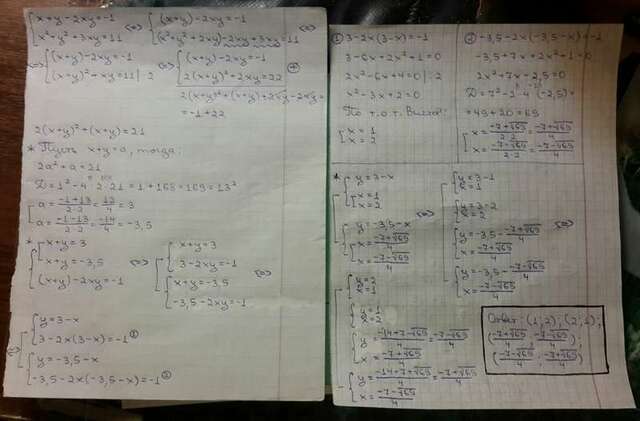 {x+y-2xy=-1 <=> {(x+y)-2xy=-1
{x²+y²+3xy=11 <=> {(x²+y²+2xy)-2xy+3xy=11 <=>
<=> {(x+y)-2xy=-1 <=> {(x+y)-2xy=-1
{(x+y)²+xy=11|·2 {2(x+y)²+2xy=22 (+)
2(x+y)²+(x+y)+2xy-2xy=
=-1+22
2(x+y)²+(x+y)=21
* Пусть x+y=a, тогда:
2a²+a=21
D=1²-4·2·21=1+168=169=13²
[a=(-1+13)/(2·2)=12/4=3
[a=(-1-13)/(2·2)=-14/4=-3,5
* {[x+y=3
{[x+y=-3,5 <=>
{(x+y)-2xy=-1
[{x+y=3
[{3-2xy=-1
[{x+y=-3,5 <=>
[{-3,5-2xy=-1
<=> [{y=3-x
[{3-2x(3-x)=-1 ①
[{y=-3,5-x
[{-3,5-2x(-3,5-x)=-1 ②
① 3-2x(3-x)=-1
3-6x+2x²+1=0
2x²-6x+4=0|:2
x²-3x+2=0
По т.о.т. Виета:
[x=1
[x=2
② -3,5-2x(-3,5-x)=-1
-3,5+7x+2x²+1=0
2x²+7x-2,5=0
D=7²-2·4·(-2,5)=
=49+20=69
[x=(-7+√69)/(2·2)=(-7+√69)/4
[x=(-7-√69)/(2·2)=(-7-√69)/4
* [{y=3-x
[{[x=1
[{[x=2
[{y=-3,5-x <=>
[{[x=(-7+√69)/4
[{[x=(-7-√69)/4
[{y=3-1
[{x=1
[{y=3-2
[{x=2
[{y=-3,5-(-7+√69)/4 <=>
[{x=(-7+√69)/4
[{y=-3,5-(-7-√69)/4
[{x=(-7-√69)/4
[{y=2
[{x=1
[{y=1
[{x=2
[{y=(-14+7-√69)/4=(-7-√69)/4
[{x=(-7+√69)/4
[{y=(-14+7+√69)/4=(-7+√69)/4
[{x=(-7-√69)/4
Ответ: (1;2); (2;1);
((-7+√69)/4; (-7-√69)/4);
((-7-√69)/4; (-7+√69)/4)